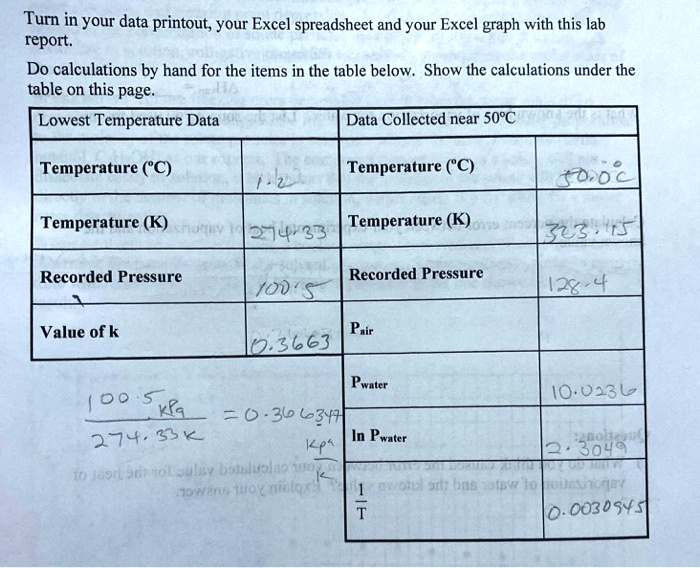 Turn in your data printout, your Excel spreadsheet and your Excel graph with this lab
report.
Do calculations by hand for the items in the table below. Show the calculations under the
table on this page.
Lowest Temperature Data
Data Collected near 50°C
Temperature (°C)
1.2
Temperature (°C)
50.0°C
Temperature (K)
274.33
Temperature (K)
323.15
Recorded Pressure
100.5
Recorded Pressure
128.4
Value of k
0.3663
Pair
Pwater
10.0236
ln Pwater
2.3049
1
T
0.0030945
100.5 kPa
274.33 K
= 0.366347
kpa
K